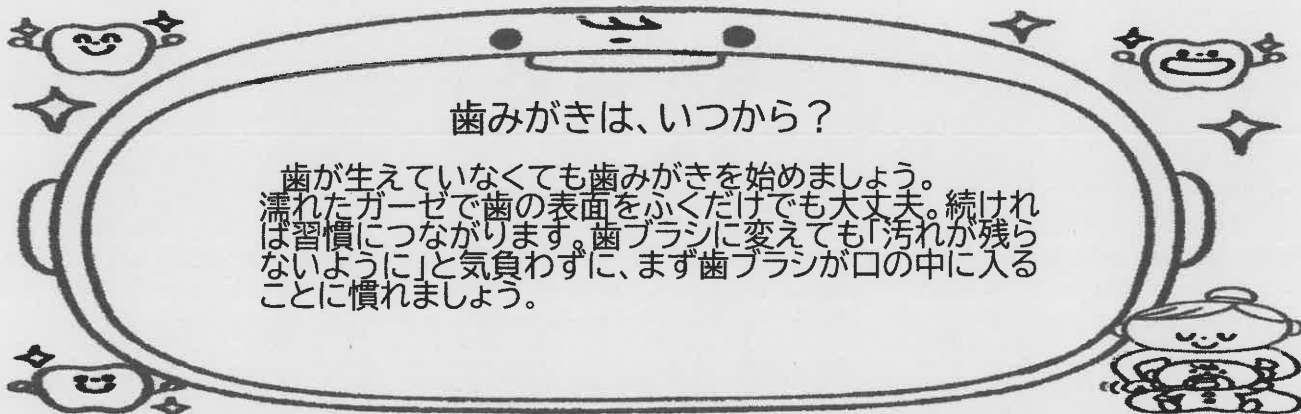 歯みがきは、いつから？
歯が生えていなくても歯みがきを始めましょう。
濡れたガーゼで歯の表面をふくだけでも大丈夫。続けれ
ば習慣につながります。歯ブラシに変えても「汚れが残ら
ないように」と気負わずに、まず歯ブラシが口の中に入る
ことに慣れましょう。